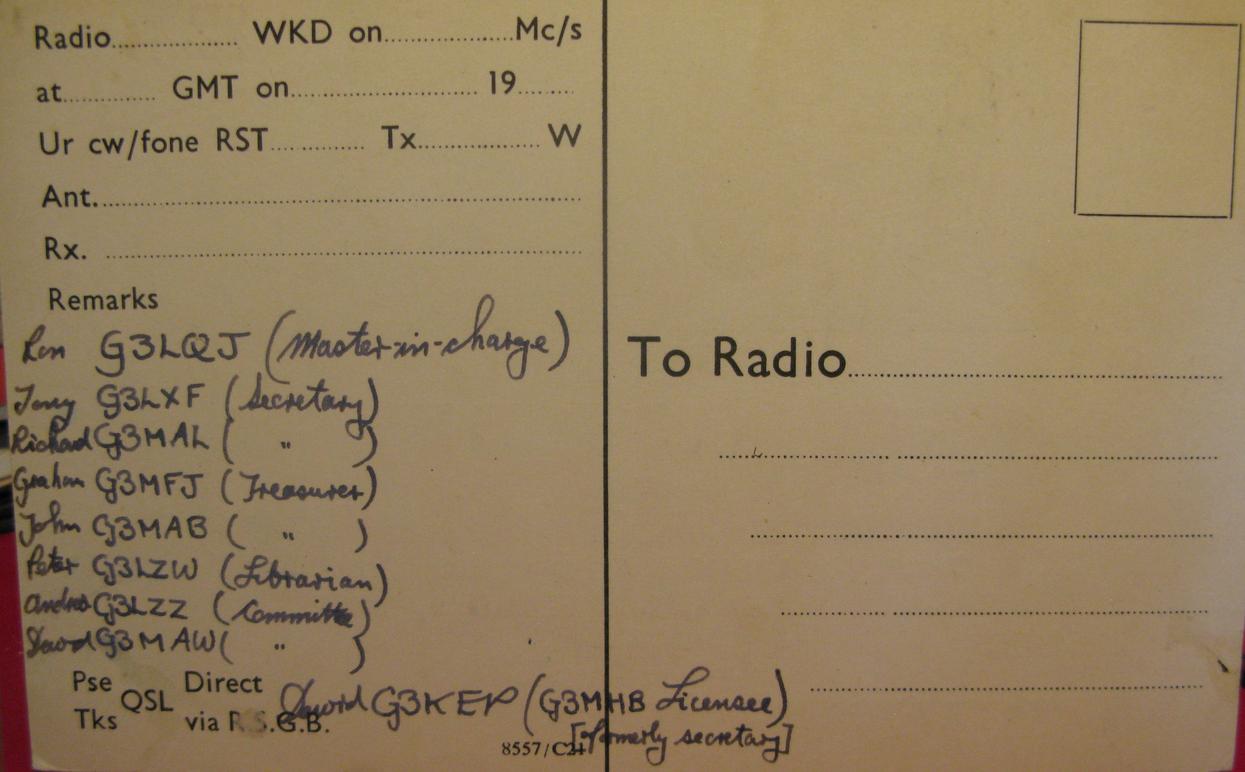 Radio.................... WKD on....................Mc/s
at.............. GMT on............................ 19........
Ur cw/fone RST.............. Tx.................. W
Ant.
Rx.
Remarks
Ron G3LQJ (Master-in-charge)
Tony G3LXF (Secretary)
Richard G3MAL ( " )
Graham G3MFJ (Treasurer)
John G3MAB ( " )
Peter G3LZW (Librarian)
Andrew G3LZZ (Committee)
David G3MAW ( " )
Pse QSL Direct
Tks via R.S.G.B.
David G3KEP (G3MHB Licensee)
[formerly secretary]
8557/C21
To Radio